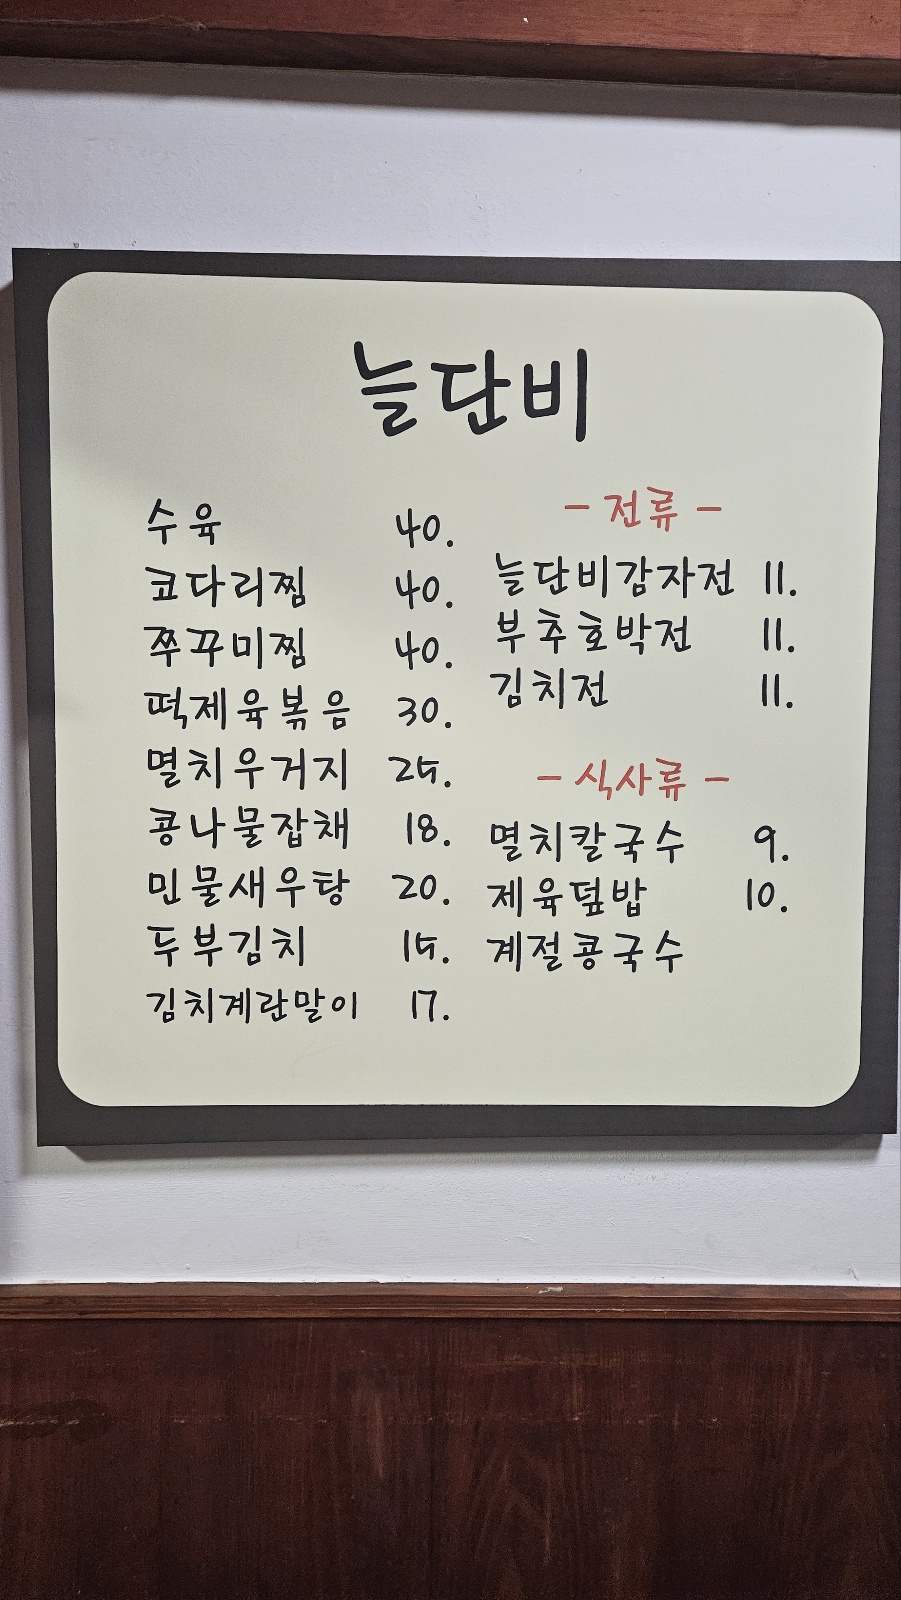 늘단비
수육 40.
코다리찜 40.
쭈꾸미찜 40.
떡제육볶음 30.
멸치우거지 25.
콩나물잡채 18.
민물새우탕 20.
두부김치 15.
김치계란말이 17.
- 전류 -
늘단비감자전 11.
부추호박전 11.
김치전 11.
- 식사류 -
멸치칼국수 9.
제육덮밥 10.
계절콩국수